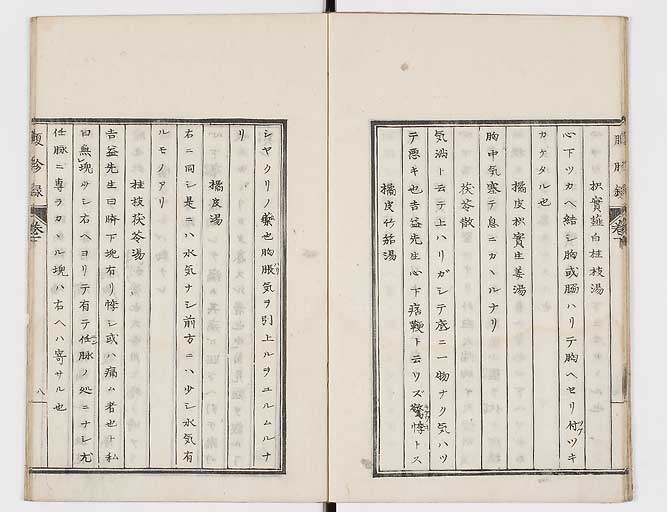 枳實薤白桂枝湯
心下ツカヘ結シ胸或脇ハリテ胸ヘセリ付ツキ
カケタル也
橘皮枳實生姜湯
胸中気塞テ息ニカヽルナリ
茯苓散
気満ト云テ上ハリガシテ底ニ一物ナク気ハツ
テ悪キ也吉益先生心下痞鞕ト云ワズ驚悸トス
橘皮竹茹湯
シヤクリノ薬也胸脹気ヲ引上ルヲユルムルナ
リ
橘皮湯
右ニ同シ是ニハ水気ナシ前方ニハ少シ水気有
ルモノアリ
桂枝茯苓湯
吉益先生曰臍下塊有リ悸シ或ハ痛ム者也ト私
曰無塊少シ右ヘヨリテ有テ任脉ノ処ニナシ尤
任脉ニ専ラカヽル塊ハ右ヘハ寄サル也
腹診録
巻下
八